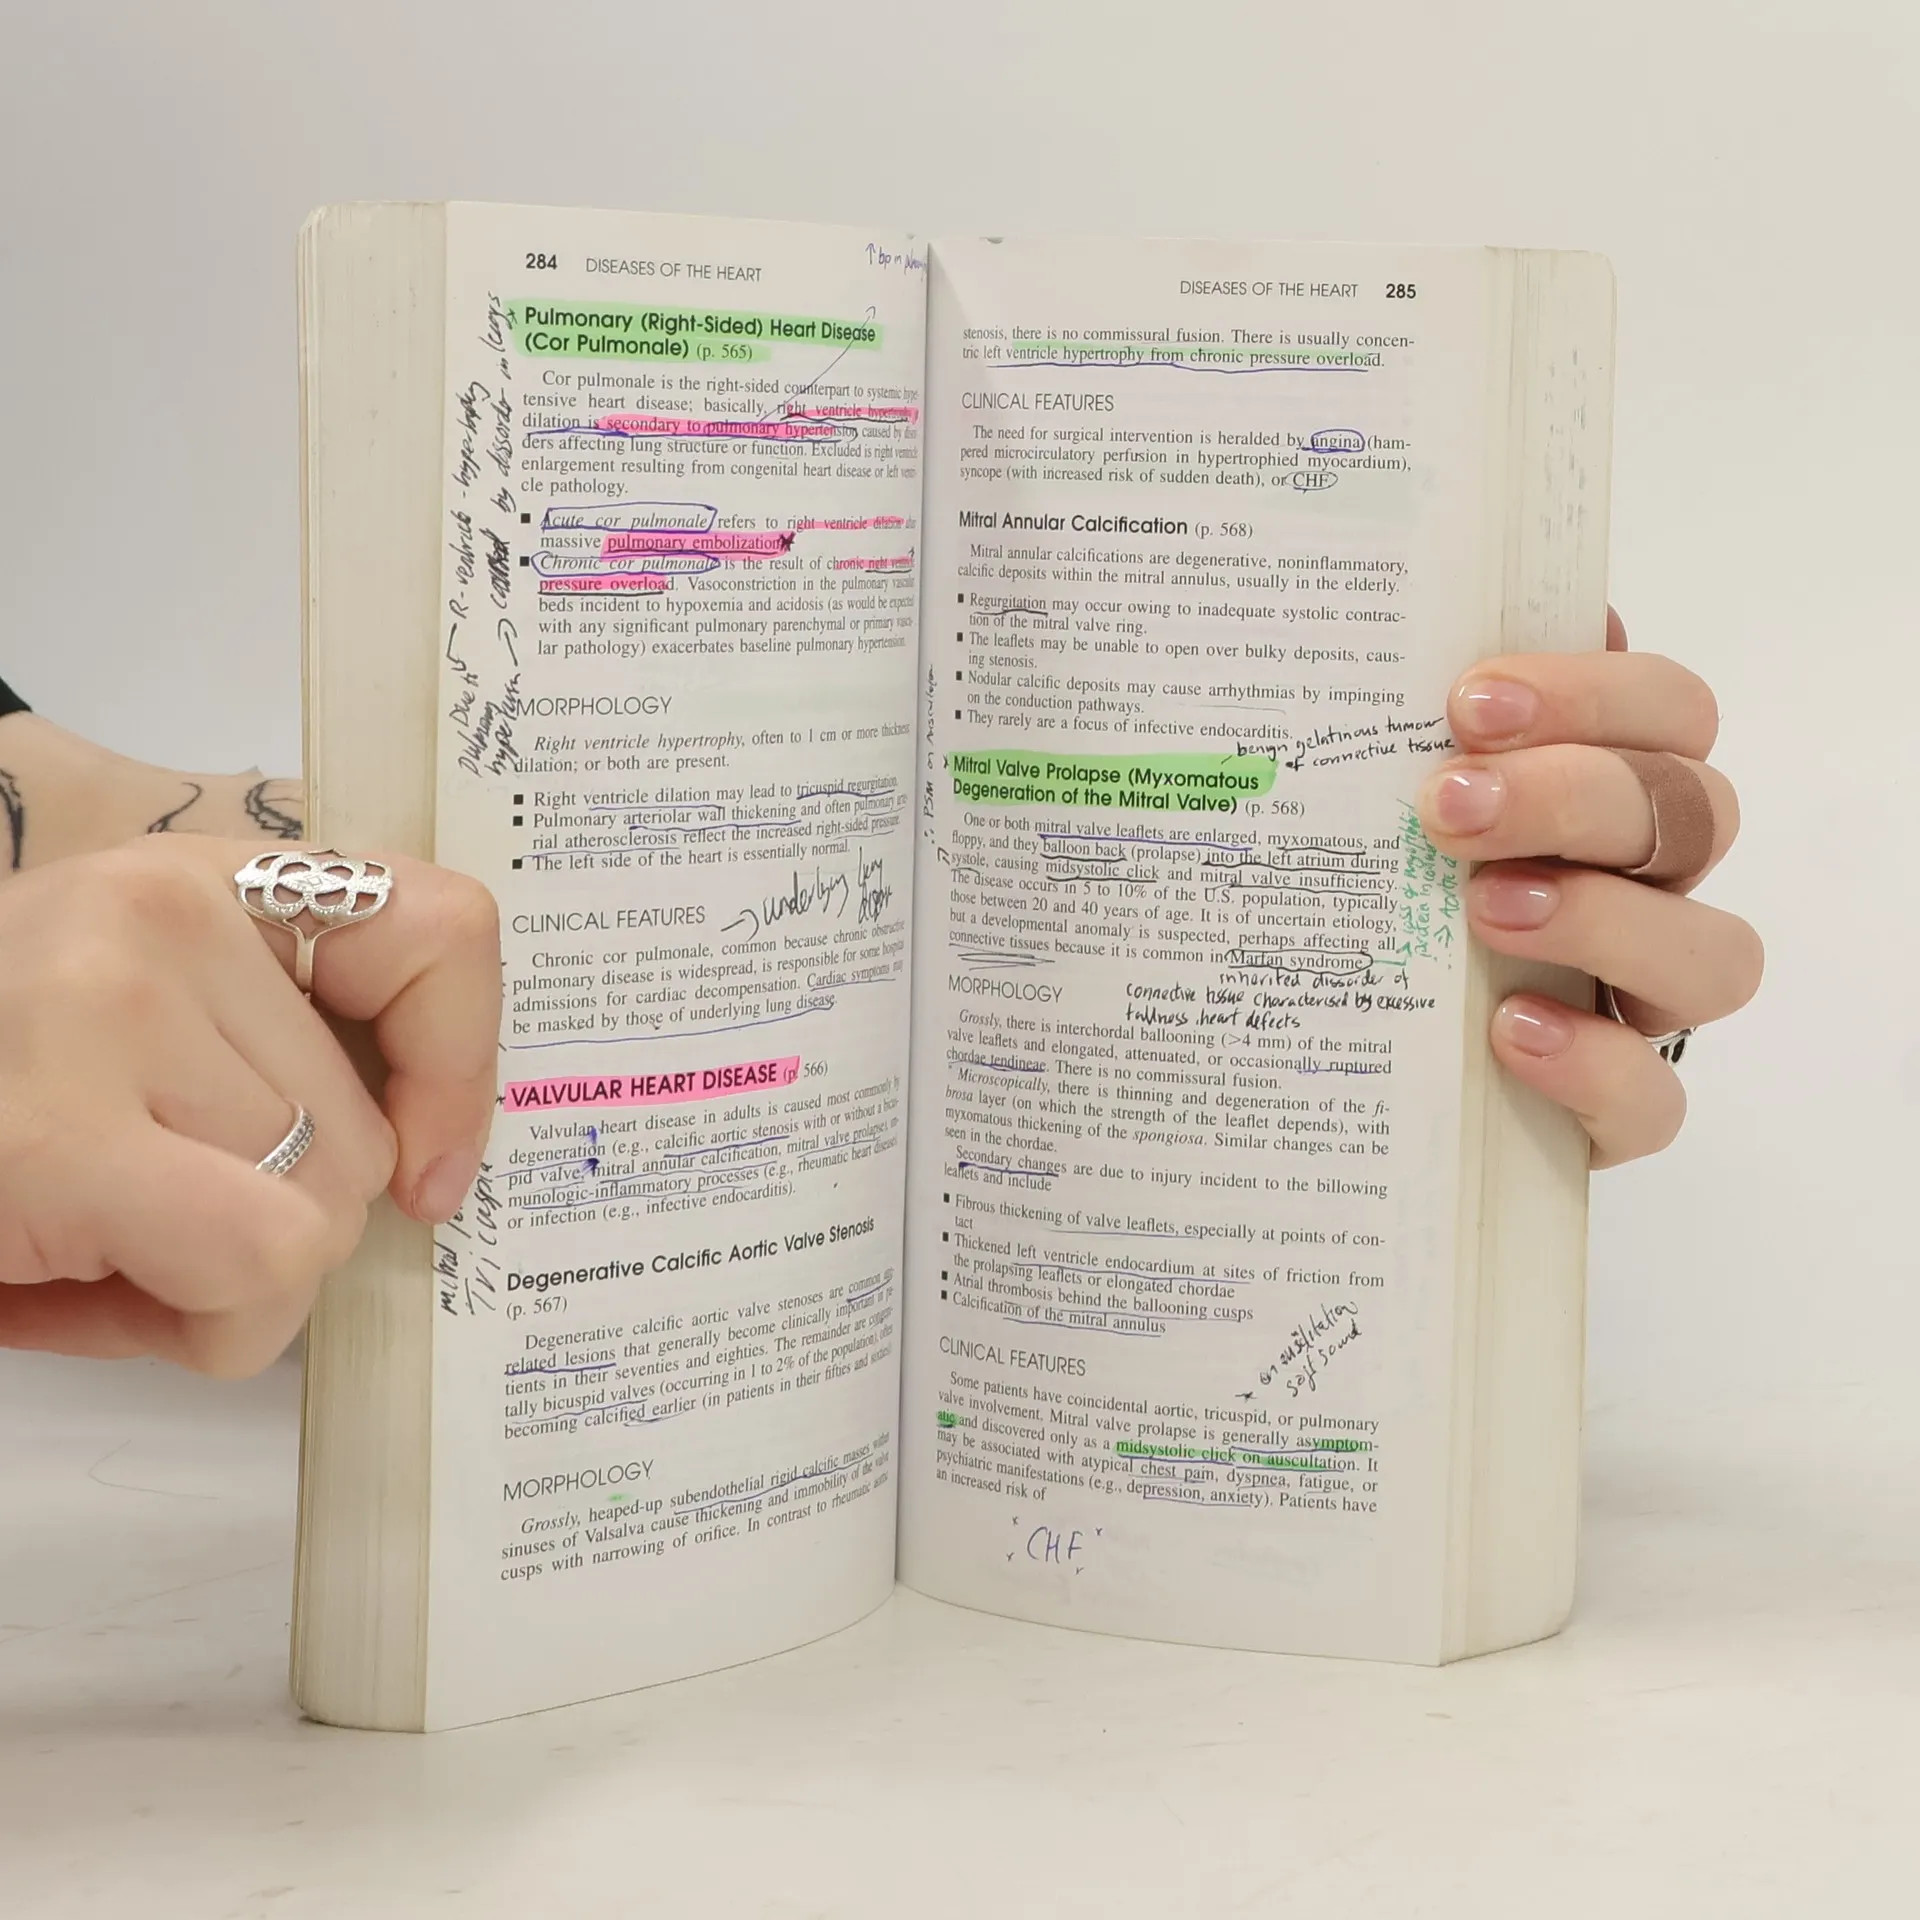 284 DISEASES OF THE HEART
↑ bp in
Pulmonary (Right-Sided) Heart Disease
(Cor Pulmonale) (p. 565)
Cor pulmonale is the right-sided counterpart to systemic hyper-
tensive heart disease; basically, right ventricle hypertrophy
dilation is secondary to pulmonary hypertension caused by disor-
ders affecting lung structure or function. Excluded is right ventricle
enlargement resulting from congenital heart disease or left ventri-
cle pathology.
■ Acute cor pulmonale refers to right ventricle dilation after
massive pulmonary embolization
■ Chronic cor pulmonale is the result of chronic right ventricle
pressure overload. Vasoconstriction in the pulmonary vascular
beds incident to hypoxemia and acidosis (as would be expected
with any significant pulmonary parenchymal or primary vascu-
lar pathology) exacerbates baseline pulmonary hypertension.
R-ventricle-hypertrophy
Due to
Pulmonary
hypertension → caused by dissorder in lungs
MORPHOLOGY
Right ventricle hypertrophy, often to 1 cm or more thickness
dilation; or both are present.
■ Right ventricle dilation may lead to tricuspid regurgitation.
■ Pulmonary arteriolar wall thickening and often pulmonary arte-
rial atherosclerosis reflect the increased right-sided pressure.
■ The left side of the heart is essentially normal.
→ underlying lung
CLINICAL FEATURES
Chronic cor pulmonale, common because chronic obstructive
pulmonary disease is widespread, is responsible for some hospital
admissions for cardiac decompensation. Cardiac symptoms may
be masked by those of underlying lung disease.
VALVULAR HEART DISEASE (p. 566)
Valvular heart disease in adults is caused most commonly by
degeneration (e.g., calcific aortic stenosis with or without a bicus-
pid valve, mitral annular calcification, mitral valve prolapse), im-
munologic-inflammatory processes (e.g., rheumatic heart disease)
or infection (e.g., infective endocarditis).
mitral
Tricuspid
Degenerative Calcific Aortic Valve Stenosis
(p. 567)
Degenerative calcific aortic valve stenoses are common age-
related lesions that generally become clinically important in pa-
tients in their seventies and eighties. The remainder are congeni-
tally bicuspid valves (occurring in 1 to 2% of the population), often
becoming calcified earlier (in patients in their fifties and sixties).
MORPHOLOGY
Grossly, heaped-up subendothelial rigid calcific masses within
sinuses of Valsalva cause thickening and immobility of the valve
cusps with narrowing of orifice. In contrast to rheumatic aortic
DISEASES OF THE HEART 285
stenosis, there is no commissural fusion. There is usually concen-
tric left ventricle hypertrophy from chronic pressure overload.
CLINICAL FEATURES
The need for surgical intervention is heralded by angina (ham-
pered microcirculatory perfusion in hypertrophied myocardium),
syncope (with increased risk of sudden death), or CHF
Mitral Annular Calcification (p. 568)
Mitral annular calcifications are degenerative, noninflammatory,
calcific deposits within the mitral annulus, usually in the elderly.
■ Regurgitation may occur owing to inadequate systolic contrac-
tion of the mitral valve ring.
■ The leaflets may be unable to open over bulky deposits, caus-
ing stenosis.
■ Nodular calcific deposits may cause arrhythmias by impinging
on the conduction pathways.
■ They rarely are a focus of infective endocarditis.
benign gelatinous tumour
of connective tissue
Mitral Valve Prolapse (Myxomatous
Degeneration of the Mitral Valve) (p. 568)
∴ PSM on
One or both mitral valve leaflets are enlarged, myxomatous, and
floppy, and they balloon back (prolapse) into the left atrium during
systole, causing midsystolic click and mitral valve insufficiency.
The disease occurs in 5 to 10% of the U.S. population, typically
those between 20 and 40 years of age. It is of uncertain etiology,
but a developmental anomaly is suspected, perhaps affecting all
connective tissues because it is common in Marfan syndrome
→ loss of
protein in
inherited dissorder of
connective tissue characterised by excessive
tallness, heart defects
MORPHOLOGY
Grossly, there is interchordal ballooning (>4 mm) of the mitral
valve leaflets and elongated, attenuated, or occasionally ruptured
chordae tendineae. There is no commissural fusion.
Microscopically, there is thinning and degeneration of the fi-
brosa layer (on which the strength of the leaflet depends), with
myxomatous thickening of the spongiosa. Similar changes can be
seen in the chordae.
Secondary changes are due to injury incident to the billowing
leaflets and include
■ Fibrous thickening of valve leaflets, especially at points of con-
tact
■ Thickened left ventricle endocardium at sites of friction from
the prolapsing leaflets or elongated chordae
■ Atrial thrombosis behind the ballooning cusps
■ Calcification of the mitral annulus
on auscultation
soft sound
CLINICAL FEATURES
Some patients have coincidental aortic, tricuspid, or pulmonary
valve involvement. Mitral valve prolapse is generally asymptom-
atic and discovered only as a midsystolic click on auscultation. It
may be associated with atypical chest pain, dyspnea, fatigue, or
psychiatric manifestations (e.g., depression, anxiety). Patients have
an increased risk of
CHF